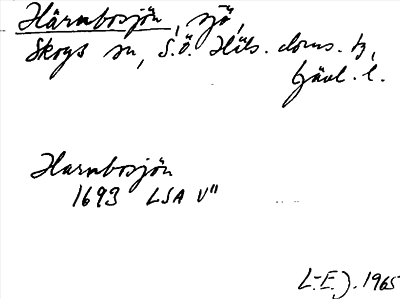 Härnbosjön, sjö,
Skogs sn, S.Ö. Häls. doms. h,
Gävl. l.
Harnbosjön
1693 LSA V"
L-E.J. 1965